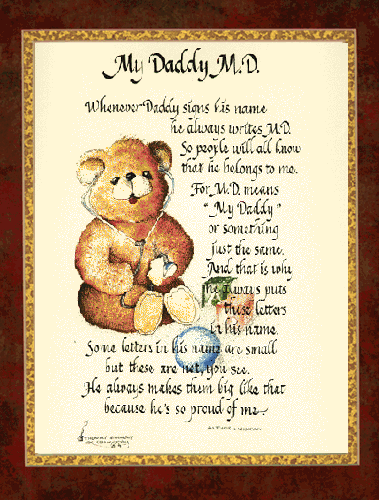 My Daddy M.D.
Whenever Daddy signs his name
he always writes M.D.
So people will all know
that he belongs to me.
For M.D. means
"My Daddy"
or something
just the same.
And that is why
he always puts
these letters
in his name.
Some letters in his name are small
but these are not, you see.
He always makes them big like that
because he's so proud of me.